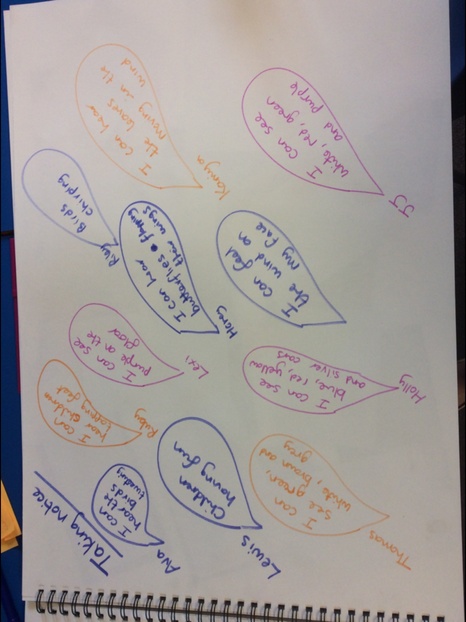 Taking notice
I can
hear the
birds
tweeting
Ava
I can
hear children
tapping feet
Ruby
I can see
purple on the
floor
Lexi
Birds
chirping
Riley
Children
having fun
Lewis
I can hear
butterflies flapping
their wings
Henry
I can hear
the leaves
moving in the
wind
Kamya
I can
see green,
white, brown and
grey
Thomas
I can see
blue, red, yellow
and silver cars
Holly
I can feel
the wind on
my face
I can see
white, red, green
and purple
JJ